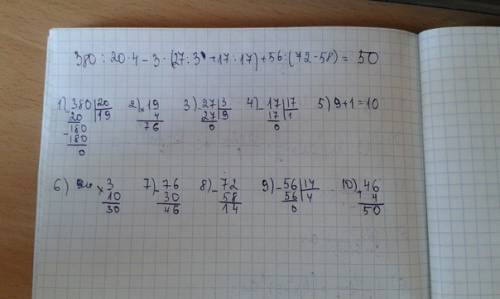 380 : 20 · 4 - 3 · (27 : 3 + 17 : 17) + 56 : (72 - 58) = 50
1) 380 | 20 2) 19 3) 27 | 3 4) 17 | 17 5) 9 + 1 = 10
- 20 | 19 × 4 - 27 | 9 - 17 | 1
180 76 0 0
- 180
0
6) 3 7) 76 8) 72 9) 56 | 14 10) 46
× 10 - 30 - 58 - 56 | 4 + 4
30 46 14 0 50